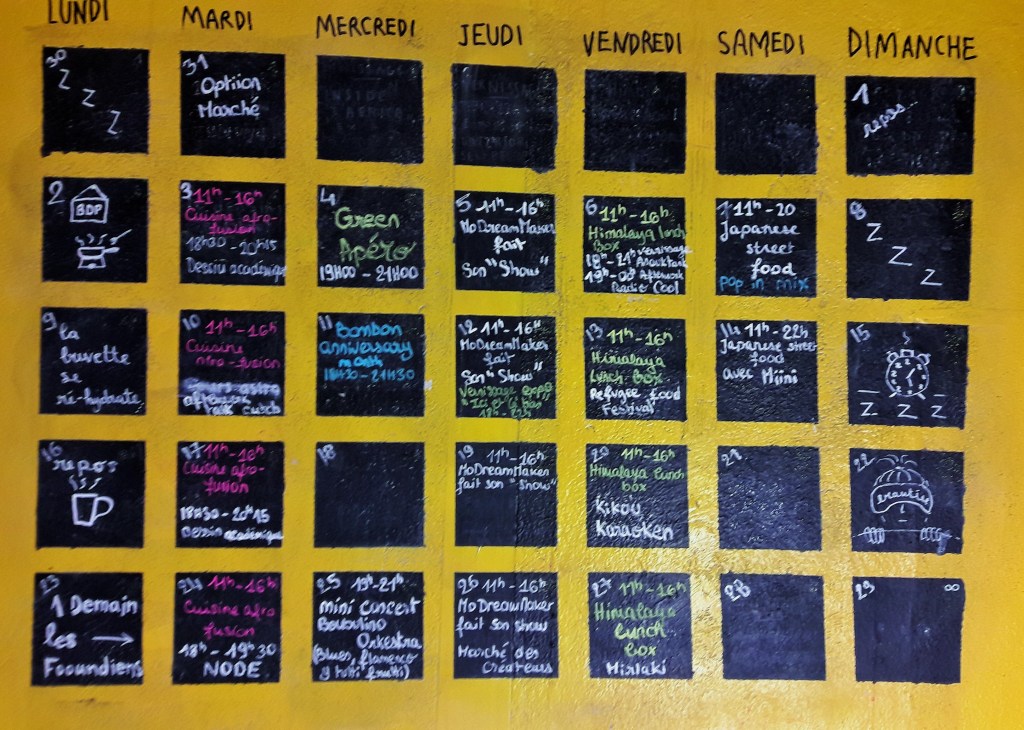 LUNDI MARDI MERCREDI JEUDI VENDREDI SAMEDI DIMANCHE
30
Z
Z
Z
31
Option
Marché
1
repos
2
BDP
3 11h-16h
Cuisine afro-
fusion
18h30 - 20h15
Dessin académique
4
Green
Apéro
19H00 - 21H00
5 11H-16H
MoDreamMaker
fait
Son "Show"
6 11h-16h
Himalaya lunch
Box
18h-21h Vernissage
19h-00h Afterwork
Radio Cool
7 11H-20
Japanese
street
food
pop in mix
8
Z
Z
Z
9
la
buvette
se
ré-hydrate
10 11h-16h
Cuisine
afro-fusion
11
Bonbon
anniversary
month
18H30 - 21H30
12 11H-16H
MoDreamMaker
fait
Son "Show"
13 11h-16h
Himalaya
Lunch Box
Refugee food
Festival
14 11H-22h
Japanese street
food
avec Miini
15
Z Z Z
16
repos
17 11h-16h
Cuisine afro-
fusion
18H30 - 20H15
Dessin académique
18
19 11H-16h
MoDreamMaker
fait son "show"
20 11h-16h
Himalaya lunch
box
Kikou
Karaoken
21
22
23
1 Demain
les
24 11h-16h
Cuisine afro
fusion
18h - 19h30
NODE
25 19h-21h
mini concert
Orkestra
(Blues, flamenco
y tutti frutti)
26 11H-16H
MoDreamMaker
fait son show
Marché des
Créateurs
27 11h-16h
Himalaya
lunch
box
28
29